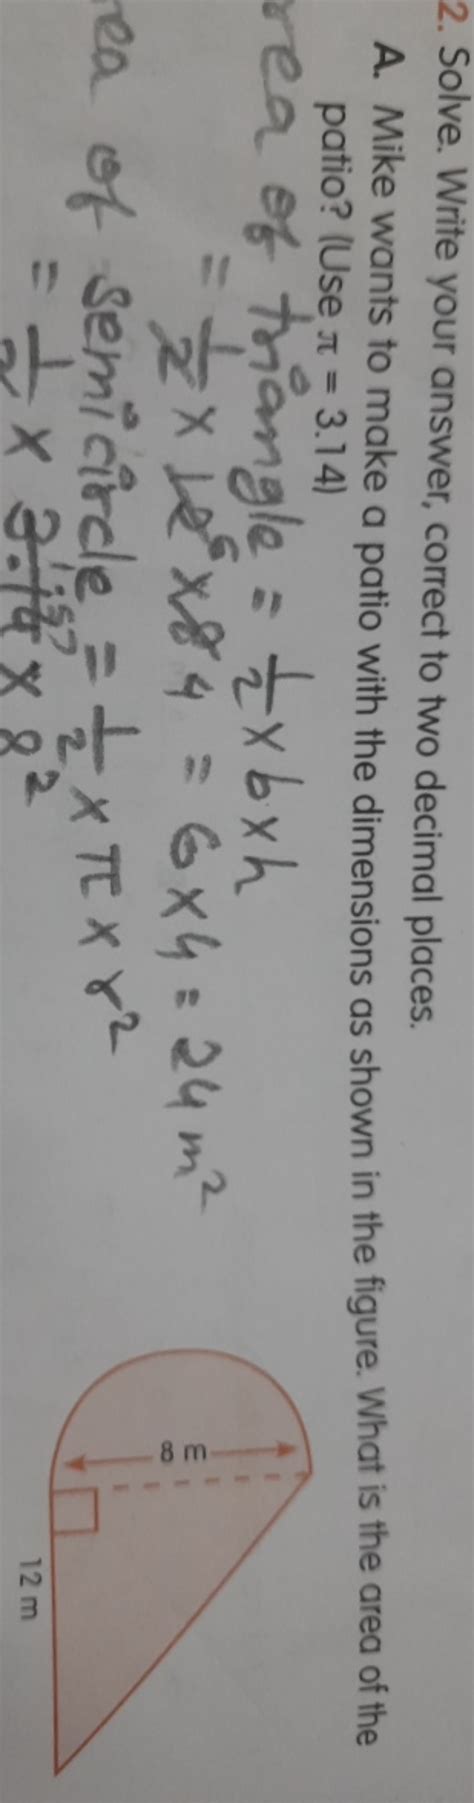 2. Solve. Write your answer, correct to two decimal places.
A. Mike wants to make a patio with the dimensions as shown in the figure. What is the area of the
patio? (Use π = 3.14)
rea of triangle = 1/2 × b × h
= 1/2 × 12 6 × 8 4 = 6 × 4 = 24 m²
rea of semicircle = 1/2 × π × r²
= 1/2 × 3.14 1.57 × 8²
8 m
12 m